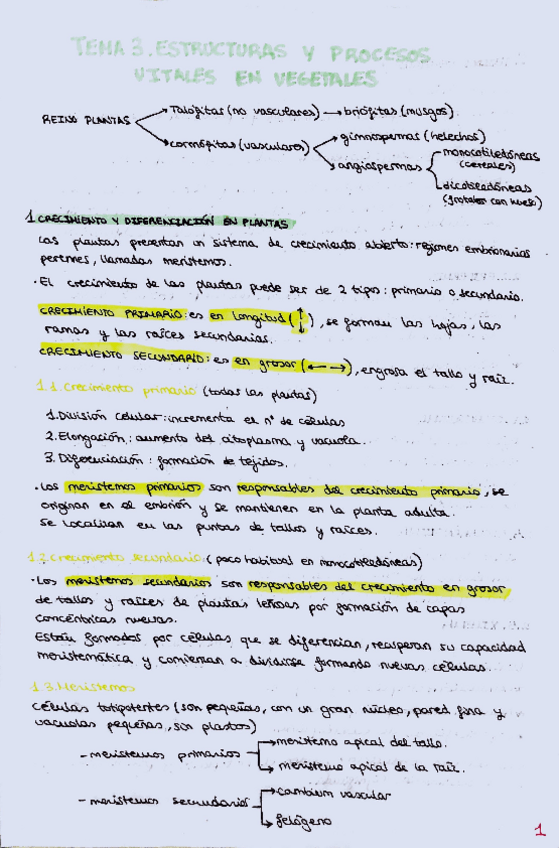 TEMA 3. ESTRUCTURAS Y PROCESOS
VITALES EN VEGETALES
REINO PLANTAS
Talófitas (no vasculares) → briófitas (musgos)
cormófitas (vasculares)
gimnospermas (helechos)
angiospermas
monocotiledóneas
(cereales)
dicotiledóneas
(frutales con hueso)
1. CRECIMIENTO Y DIFERENCIACIÓN EN PLANTAS
Las plantas presentan un sistema de crecimiento abierto: regiones embrionarias
perennes, llamadas meristemos.
· El crecimiento de las plantas puede ser de 2 tipos: primario o secundario.
CRECIMIENTO PRIMARIO: es en longitud (↕), se forman las hojas, las
ramas y las raíces secundarias.
CRECIMIENTO SECUNDARIO: es en grosor (←→), engrosa el tallo y raíz.
1.1. Crecimiento primario (todas las plantas)
1. División celular: incrementa el nº de células
2. Elongación: aumento del citoplasma y vacuola.
3. Diferenciación: formación de tejidos.
· Los meristemos primarios son responsables del crecimiento primario, se
originan en el embrión y se mantienen en la planta adulta.
Se localizan en las puntas de tallos y raíces.
1.2. Crecimiento secundario (poco habitual en monocotiledóneas)
· Los meristemos secundarios son responsables del crecimiento en grosor
de tallos y raíces de plantas leñosas por formación de capas
concéntricas nuevas.
Están formados por células que se diferencian, recuperan su capacidad
meristemática y comienzan a dividirse formando nuevas células.
1.3. Meristemos
Células totipotentes (son pequeñas, con un gran núcleo, pared fina y
vacuolas pequeñas, sin plastos)
- meristemos primarios
meristemo apical del tallo.
meristemo apical de la raíz.
- meristemos secundarios
cambium vascular
felógeno
1